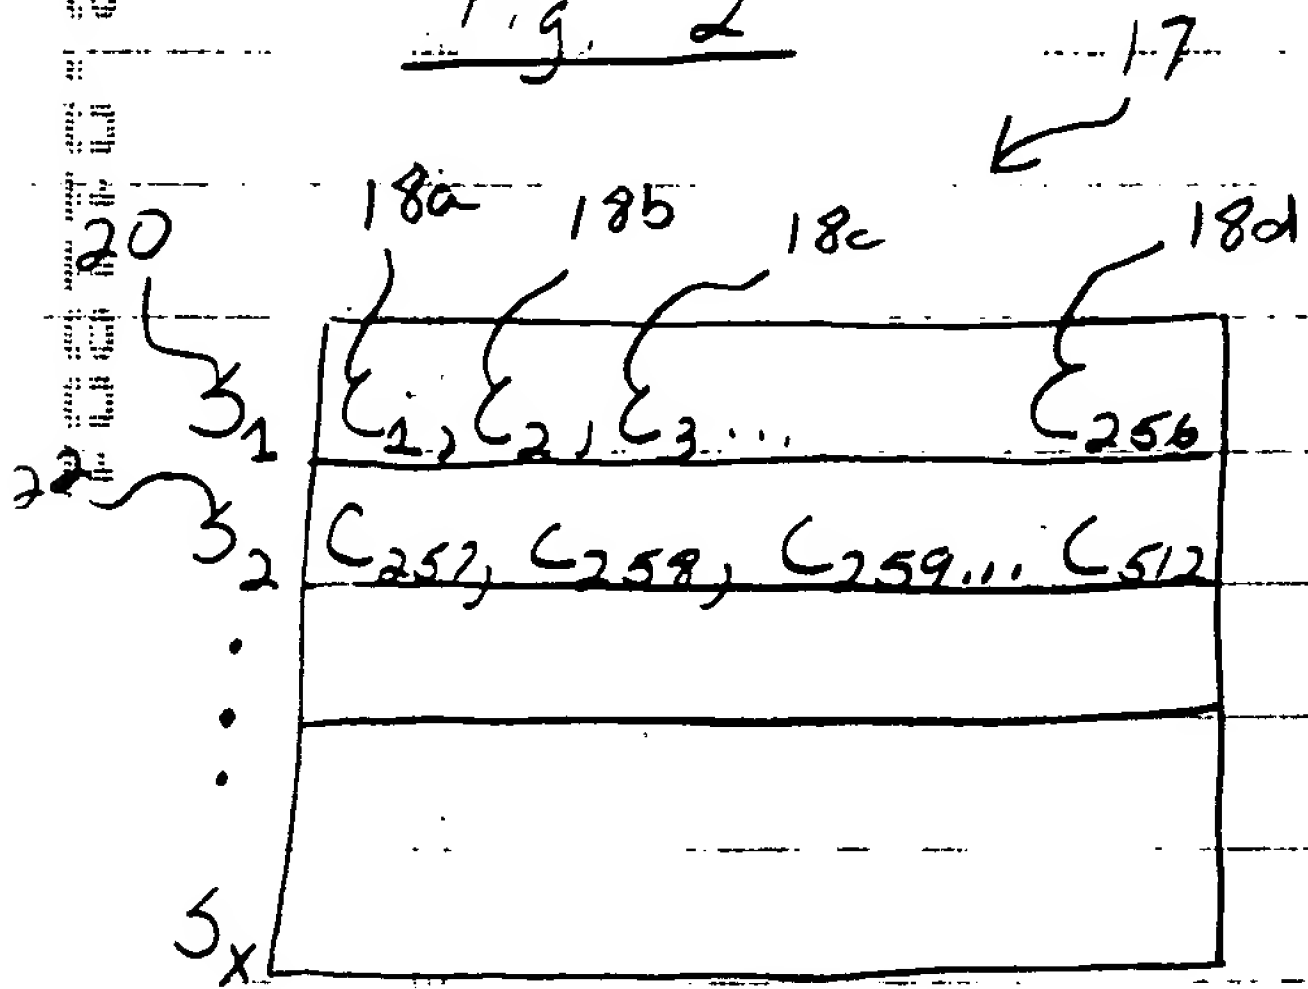 Fig. 2
17
18a 18b 18c 18d
20
S1 C1, C2, C3... C256
22
S2 C257, C258, C259... C512
Sx